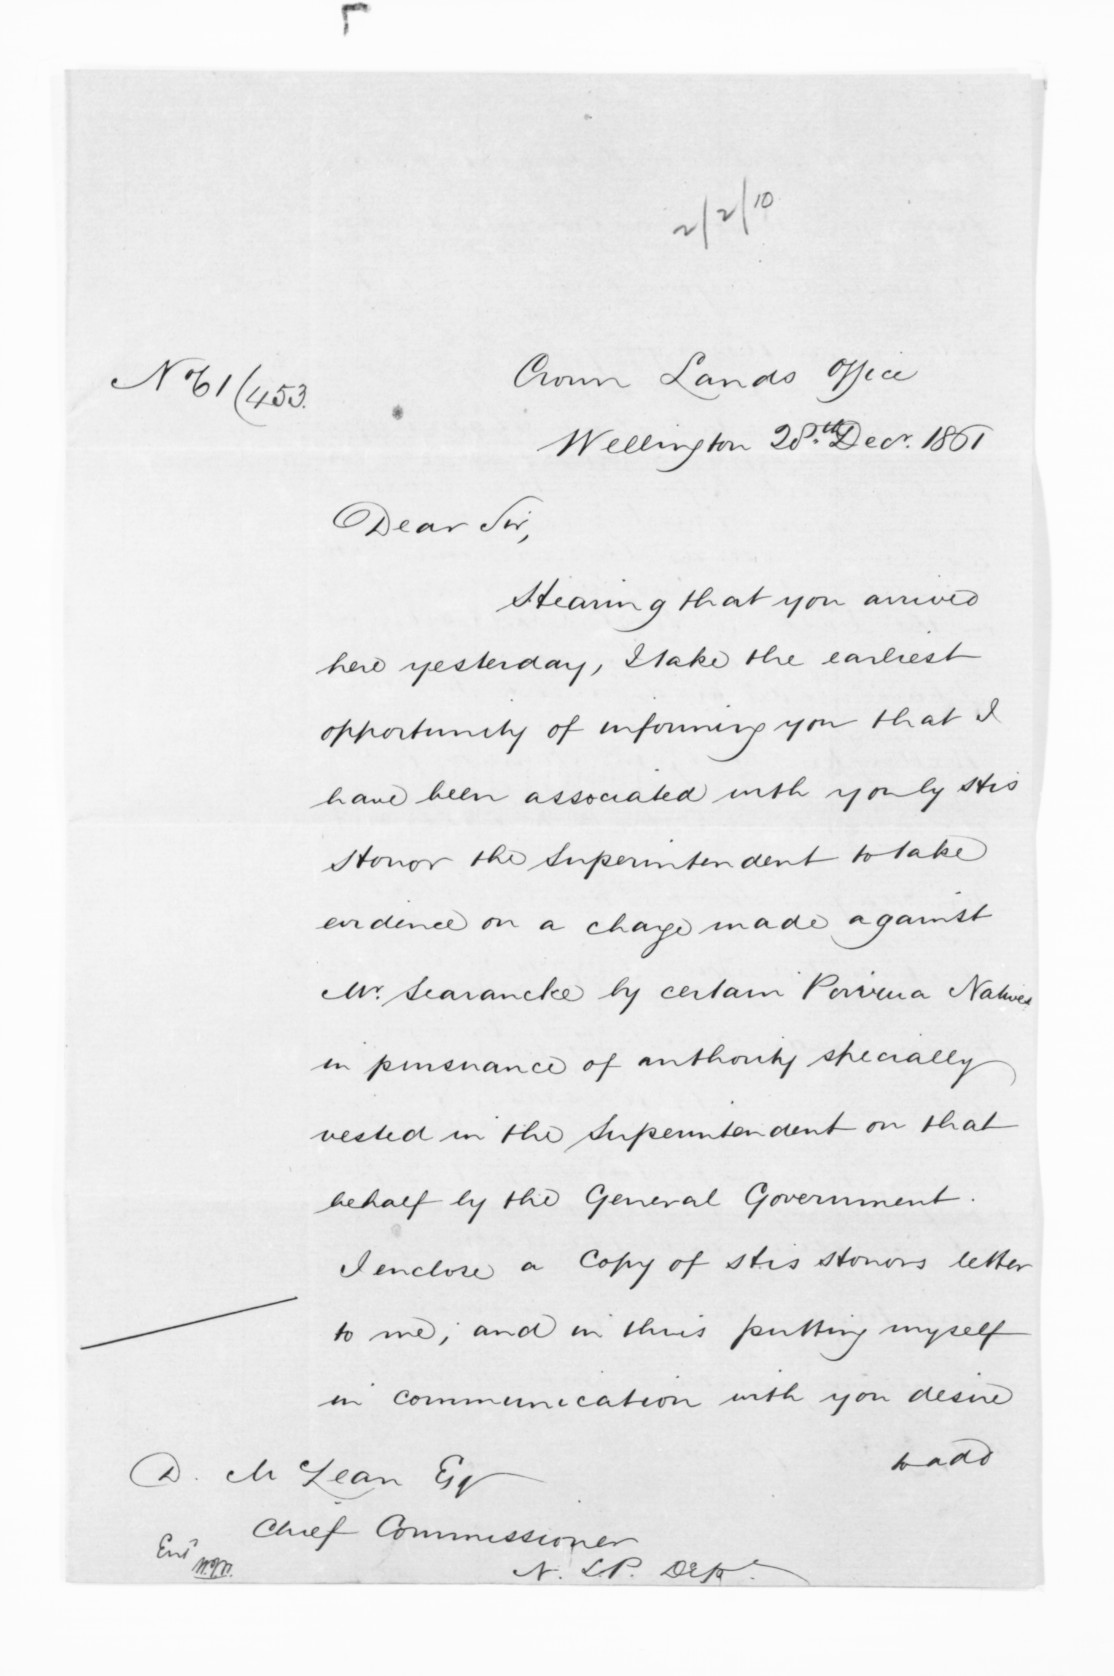 2/2/10
No 61/453.
Crown Lands Office
Wellington 28.th Decr. 1861
Dear Sir,
Hearing that you arrived
here yesterday, I take the earliest
opportunity of informing you that I
have been associated with you by His
Honor the Superintendent to take
evidence on a charge made against
Mr. Searancke by certain Porirua Natives
in pursuance of authority specially
vested in the Superintendent on that
behalf by the General Government.
I enclose a Copy of His Honors letter
to me, and in thus putting myself
in communication with you desire
to add
D. McLean Esq
Chief Commissioner
N. L.P. Dept.